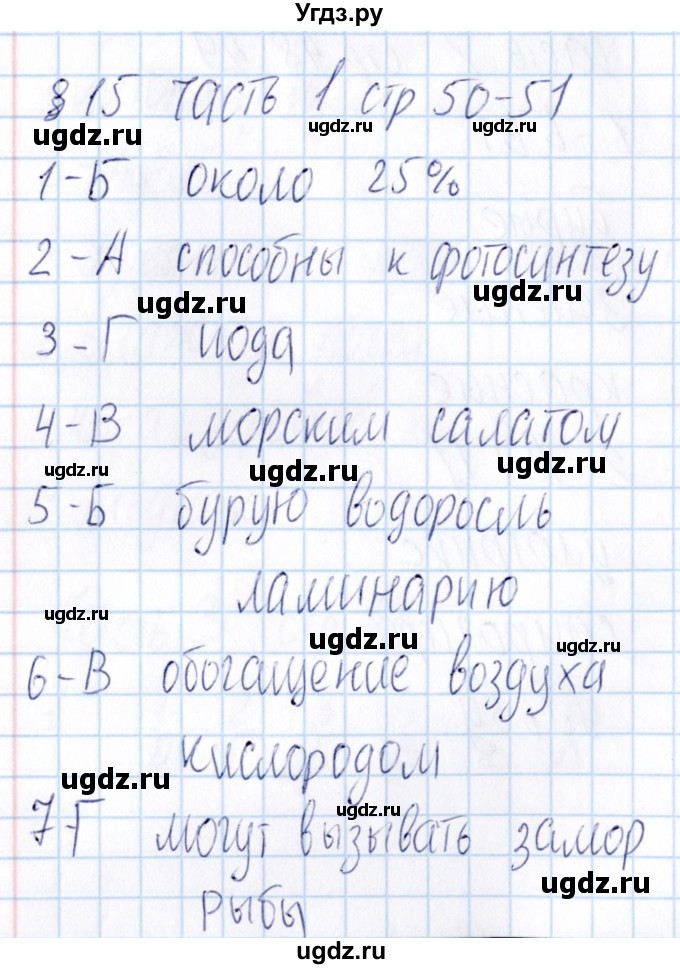 Угдз.ру
§ 15 часть 1 стр 50-51
ugdz.ru ugdz.ru ugdz.ru
1-Б около 25%
2-А способны к фотосинтезу
ugdz.ru ugdz.ru
3-Г иода
4-В морским салатом
ugdz.ru ugdz.ru ugdz.ru
5-Б бурую водоросль
ламинарию
ugdz.ru ugdz.ru ugdz.ru
6-В обогащение воздуха
кислородом
ugdz.ru ugdz.ru
7-Г могут вызывать замор
ugdz.ru
рыбы
ugdz.ru